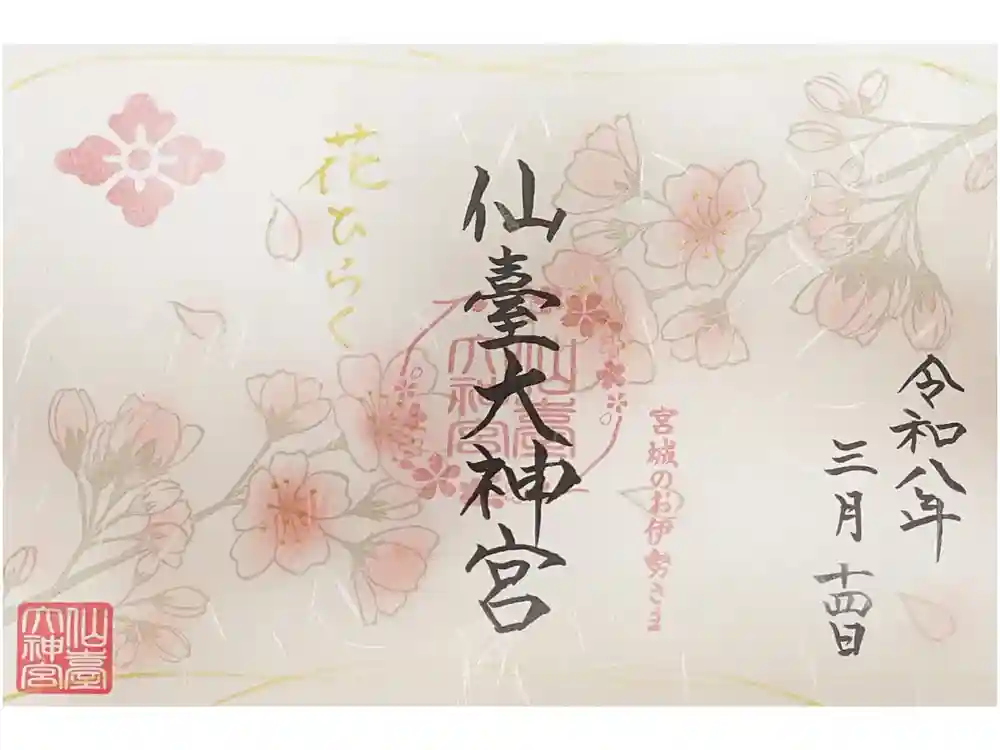 令和八年
三月十四日
宮城のお伊勢さま
仙臺大神宮
仙臺
大神宮
花ひらく
仙臺
大神宮